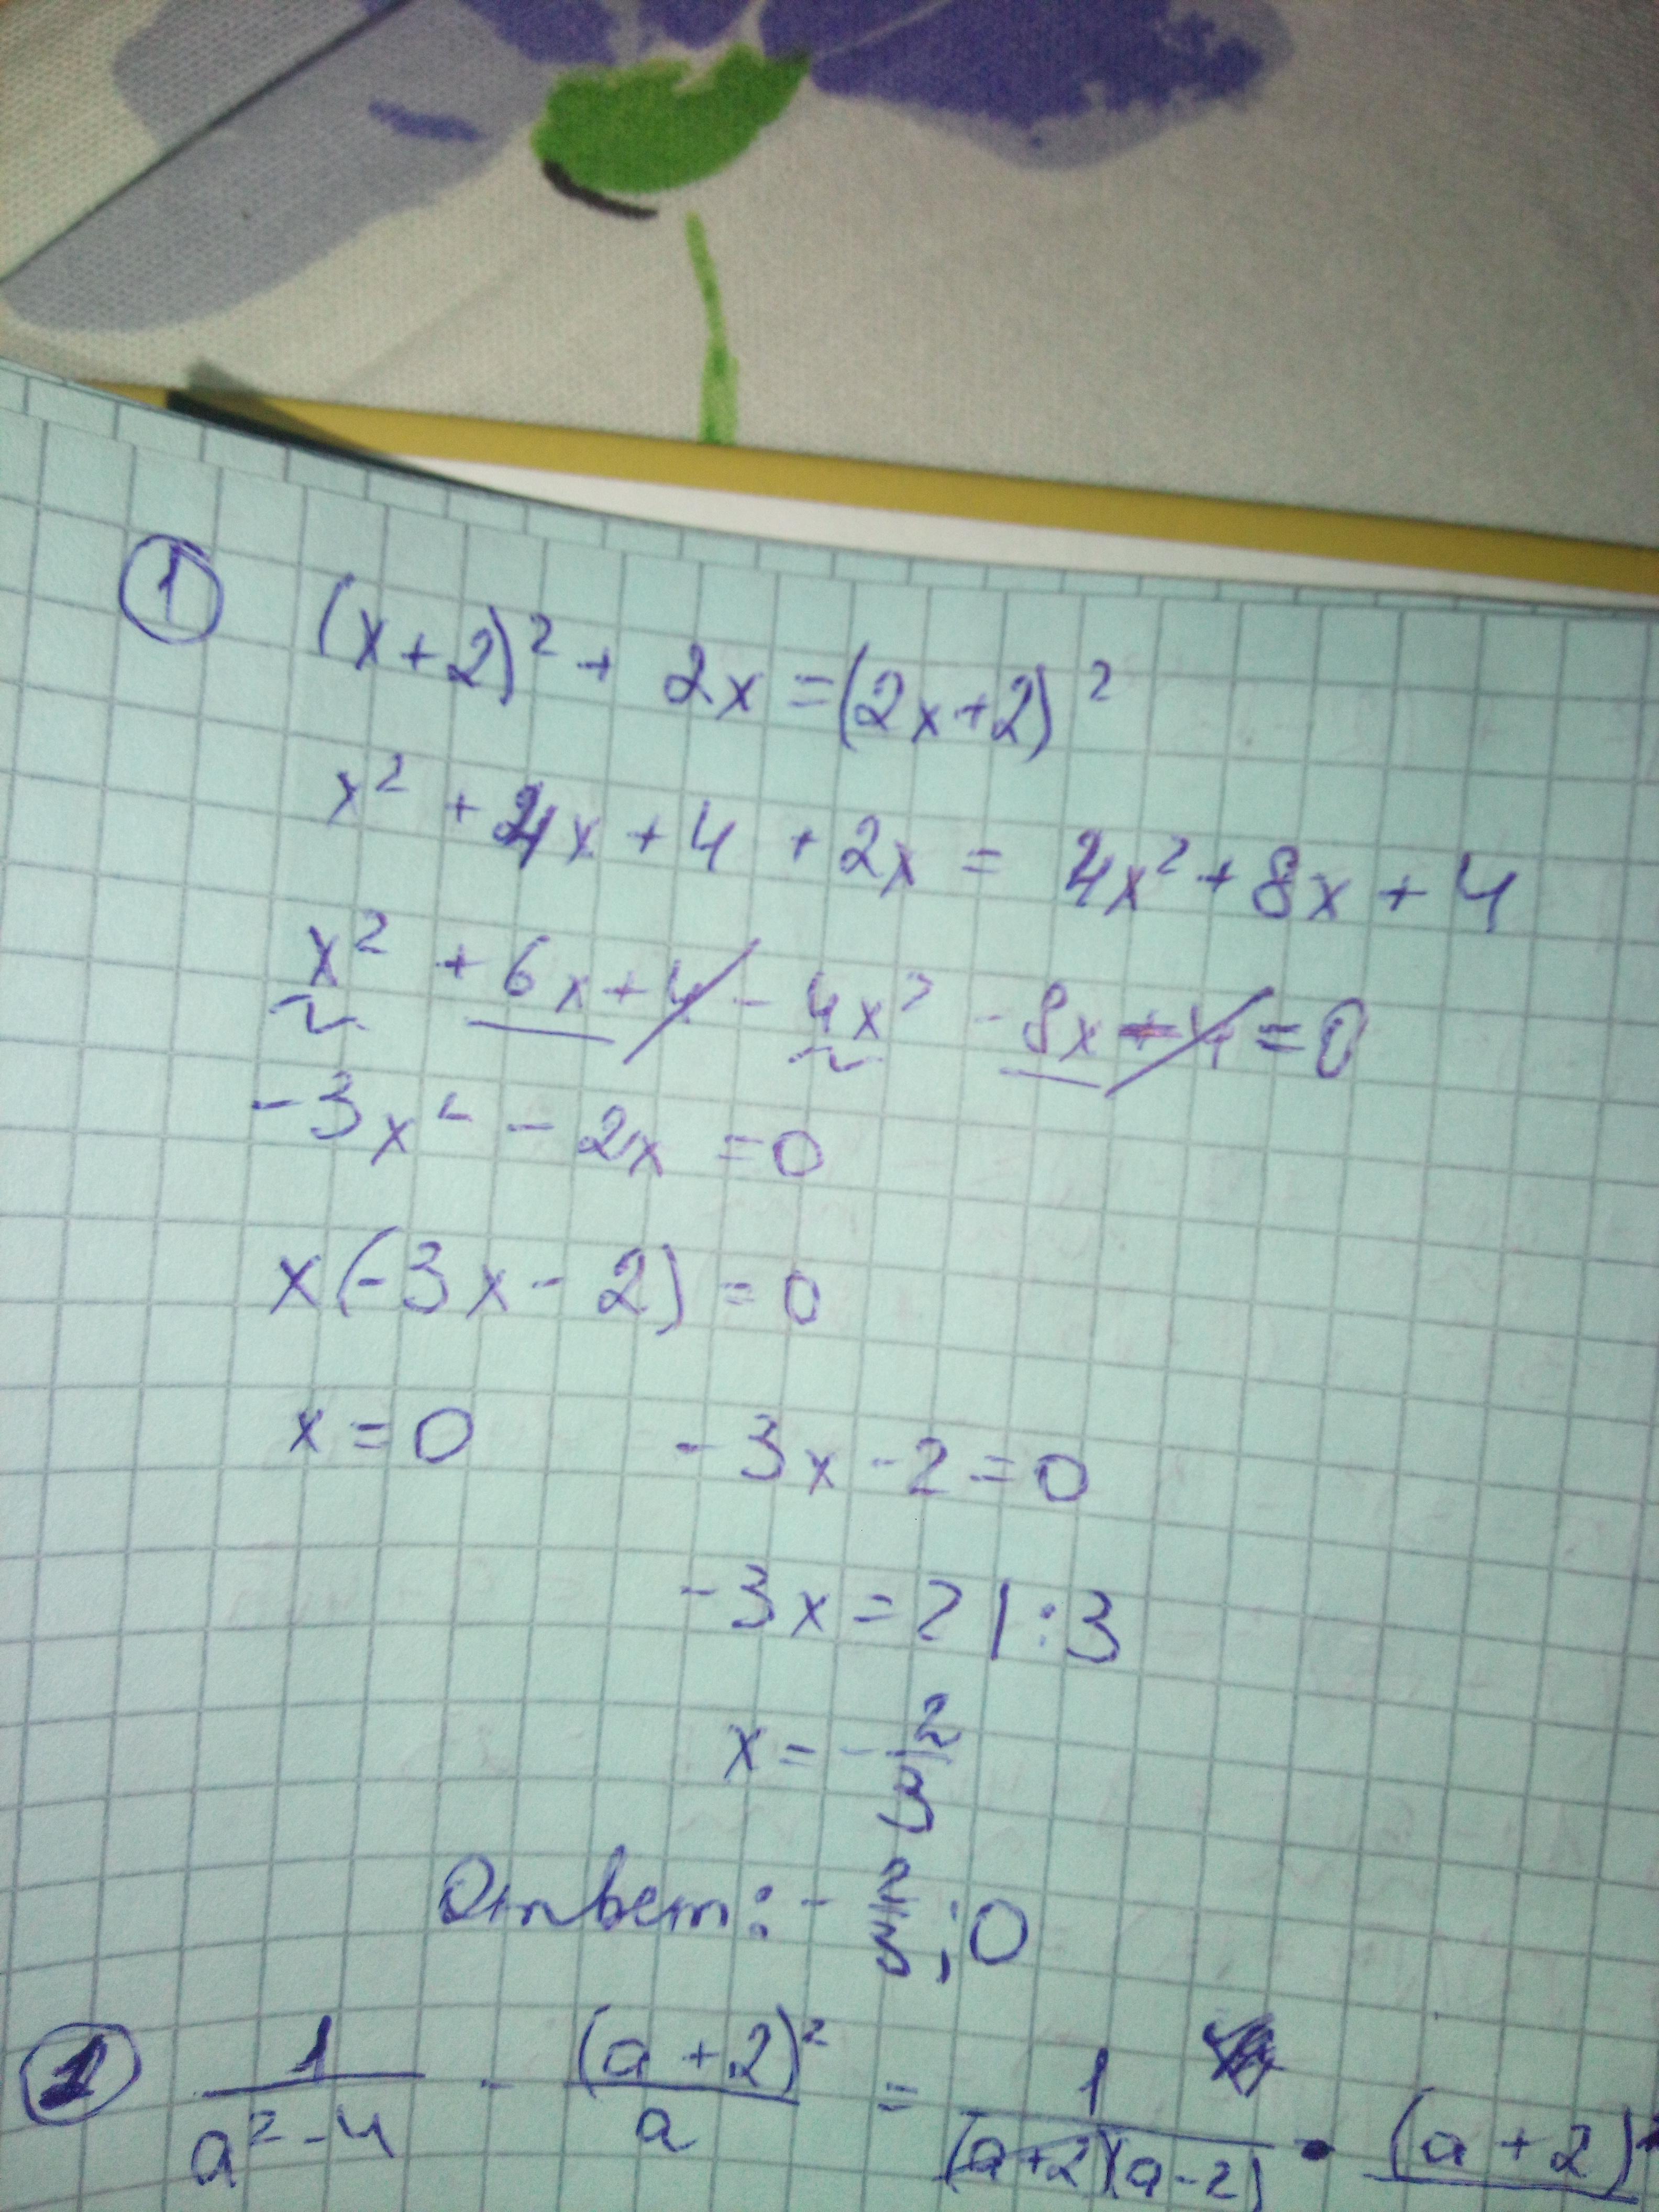 1 (x+2)² + 2x = (2x+2)²
x² + 4x + 4 + 2x = 4x² + 8x + 4
x² + 6x + 4 - 4x² - 8x - 4 = 0
-3x² - 2x = 0
x(-3x - 2) = 0
x = 0 -3x - 2 = 0
-3x = 2 | :3
x = - 2/3
Ответ: - 2/3 ; 0
1/(a² - 4) - (a + 2)²/a = 1/((a+2)(a-2)) • (a + 2)²